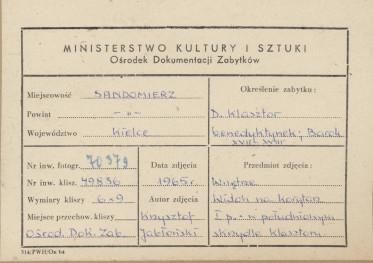 MINISTERSTWO KULTURY I SZTUKI
Ośrodek Dokumentacji Zabytków
Miejscowość SANDOMIERZ
Powiat — „ —
Województwo Kielce
Określenie zabytku:
D. Klasztor
benedyktynek; Barok
XVII XVIII
Nr inw. fotogr. 70979
Nr inw. klisz. 49836
Wymiary kliszy 6×9
Miejsce przechow. kliszy
Ośrod. Dok. Zab.
Data zdjęcia
1965 r.
Autor zdjęcia
Krzysztof
Jabłoński
Przedmiot zdjęcia:
Wnętrze
Widok na korytarz
I p. - w południowym
skrzydle klasztoru